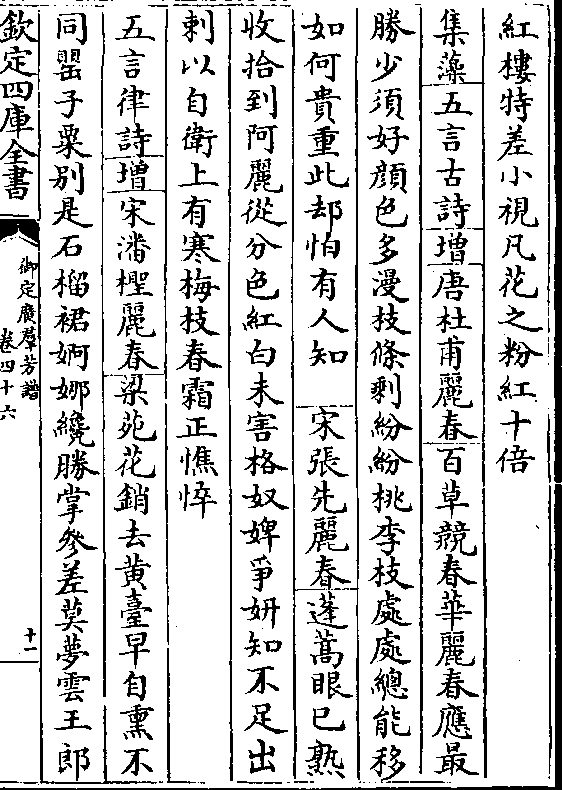 紅樓特差小視凡花之粉紅十倍
集藻五言古詩增唐杜甫麗春百草競春華麗春應最
勝少須好顏色多漫枝條剩紛紛桃李枝處處總能移
如何貴重此却怕有人知　宋張先麗春蓬蒿眼已熟
收拾到阿麗從分色紅白未害格奴婢爭妍知不足出
刺以自衛上有寒梅枝春霜正憔悴
五言律詩增宋潘檉麗春梁苑花銷去黃臺早自熏不
同罌子粟別是石榴裙婀娜纔勝掌參差莫夢雲王郎
欽定四庫全書
御定廣羣芳譜
卷四十六
十一